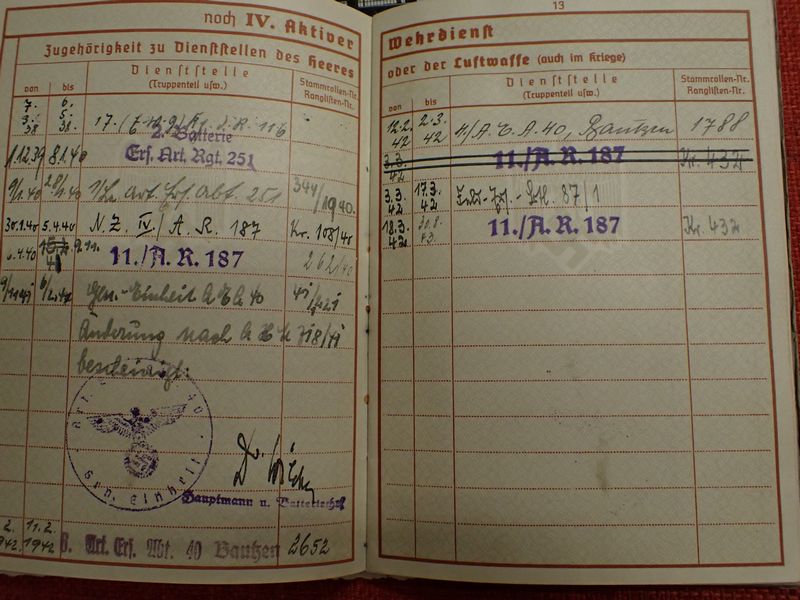 noch IV. Aktiver
Zugehörigkeit zu Dienststellen des Heeres
von
bis
Dienststelle
(Truppenteil usw.)
Stammrollen-Nr.
Ranglisten-Nr.
7.
3.
38
6.
5.
38.
17./
2. Batterie
Ers. Art. Rgt. 251
1.12.39
8.1.40
9/1.40
28/1.40
Art. Ers. Abt. 251
344/1940.
30.1.40
5.4.40
N.Z. IV./A.R. 187
Kr. 108/40
6.4.40
9.11.
41
11./A.R. 187
262/40
Gen.-Einheit A E A 40
Änderung nach
bescheinigt:
Gen. Einheit
Hauptmann u. Batteriechef
2.
1942
11.2.
1942
Art. Ers. Abt. 40 Bautzen
2652
13
Wehrdienst
oder der Luftwaffe (auch im Kriege)
von
bis
Dienststelle
(Truppenteil usw.)
Stammrollen-Nr.
Ranglisten-Nr.
12.2.
42
2.3.
42
A.E.A. 40, Bautzen
1788
3.3.
42
11./A.R. 187
Kr. 432
3.3.
42
17.3.
42
87/1
18.3.
42
11./A.R. 187
Kr. 432